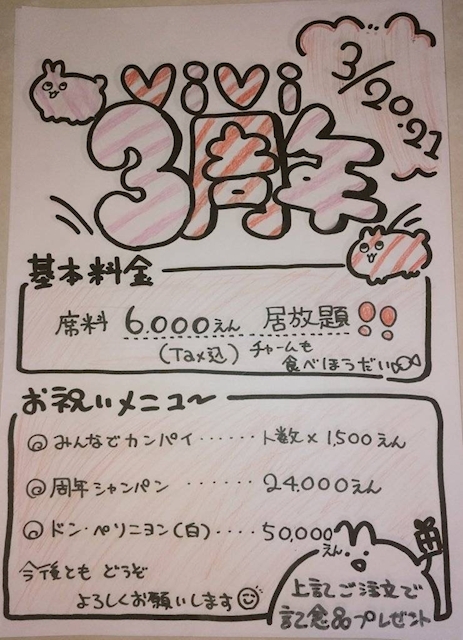 ViVi
3/20.21
3周年
基本料金
席料 6.000えん 居放題!!
(Tax込) チャームも
食べほうだい
お祝いメニュ〜
みんなでカンパイ‥‥‥人数×1500えん
周年シャンパン ‥‥‥ 24.000えん
ドン・ペリニヨン(白)‥‥50,000えん
今後とも どうぞ
よろしくお願いします
上記ご注文で
記念品プレゼント